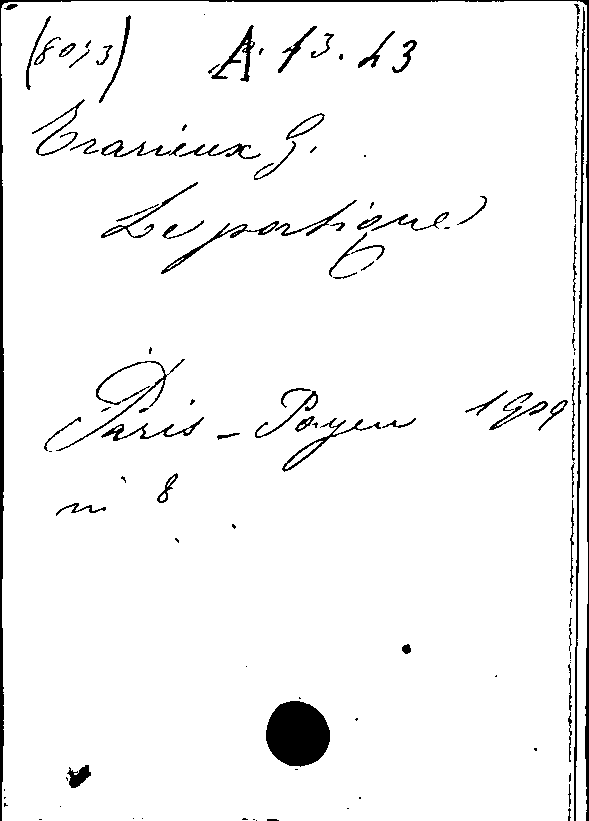 (8033) A. 13. 23
Trarieux G.
Le portique
Paris - Payen 1909
in 8